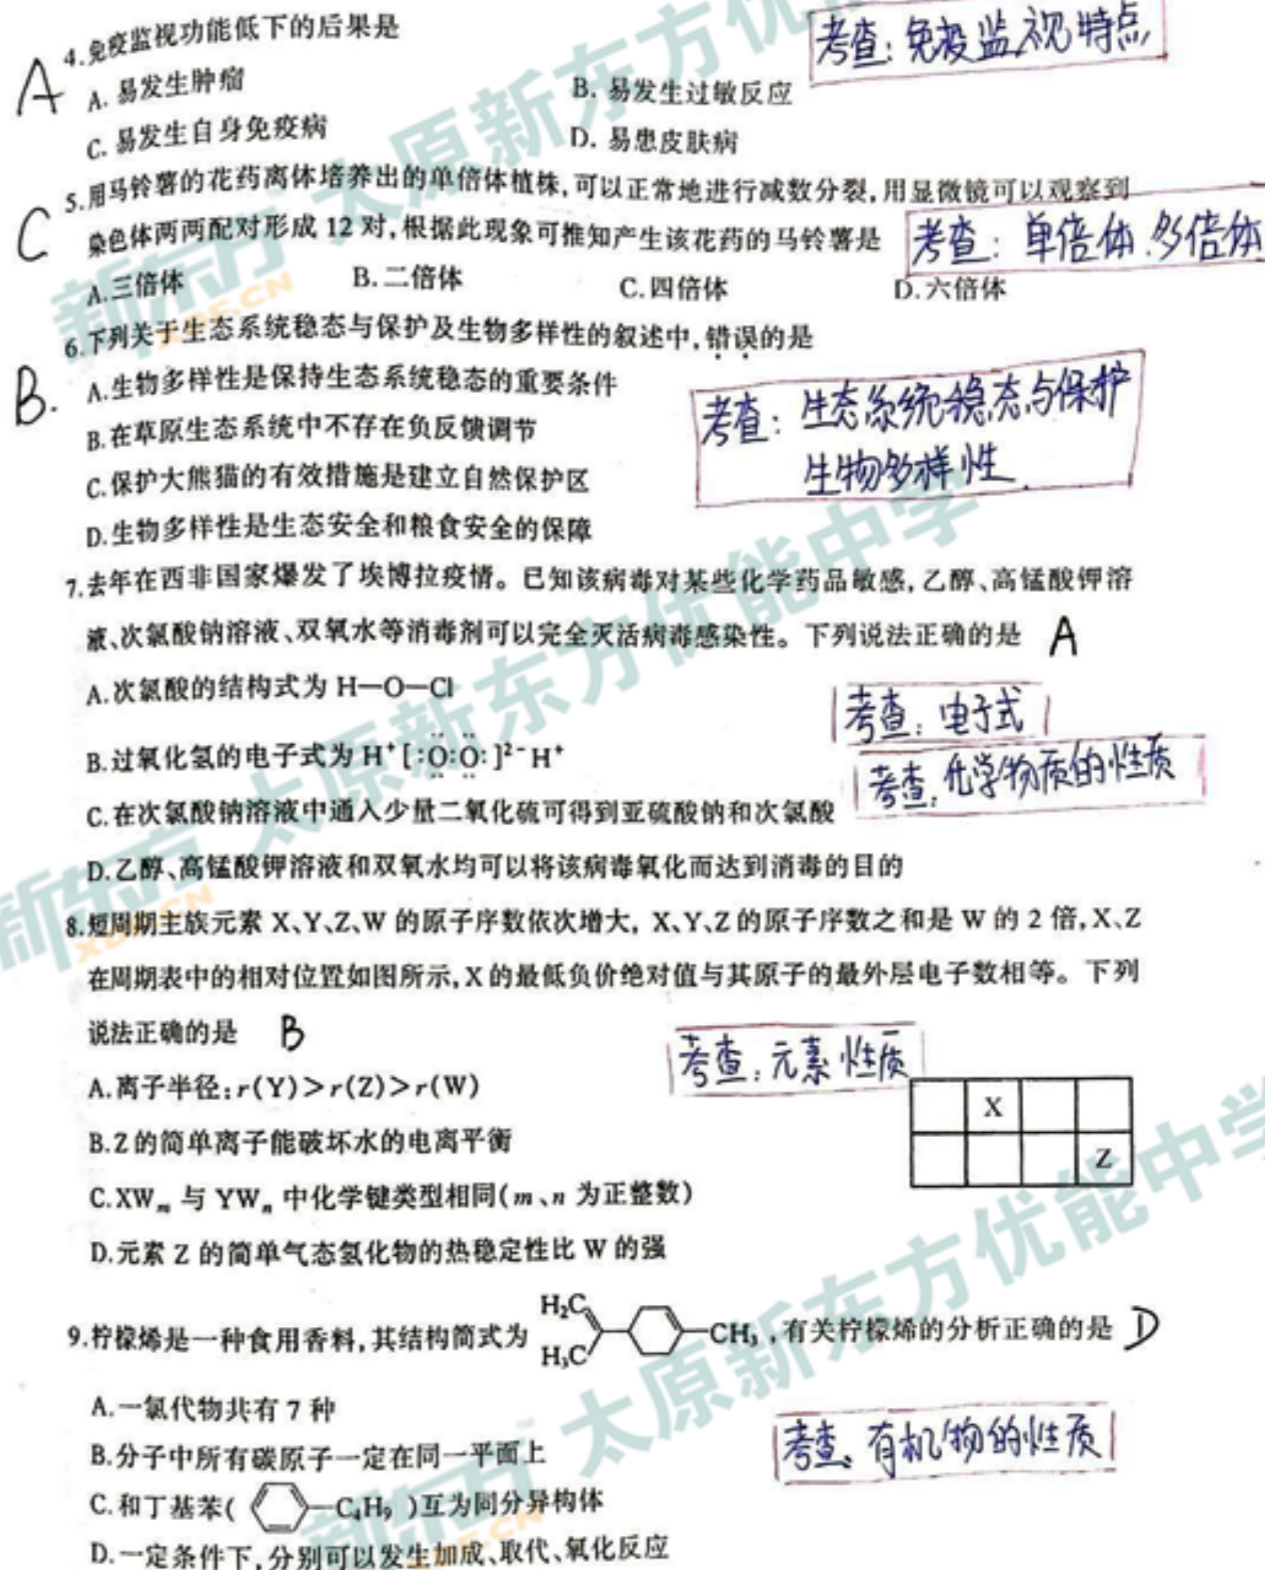 A
4.免疫监视功能低下的后果是
考查:免疫监视特点
A. 易发生肿瘤
B. 易发生过敏反应
C. 易发生自身免疫病
D. 易患皮肤病
C
5.用马铃薯的花药离体培养出的单倍体植株,可以正常地进行减数分裂,用显微镜可以观察到
染色体两两配对形成 12 对,根据此现象可推知产生该花药的马铃薯是
考查:单倍体.多倍体
A.三倍体
B.二倍体
C.四倍体
D.六倍体
6.下列关于生态系统稳态与保护及生物多样性的叙述中,错误的是
B.
A.生物多样性是保持生态系统稳态的重要条件
B.在草原生态系统中不存在负反馈调节
C.保护大熊猫的有效措施是建立自然保护区
D.生物多样性是生态安全和粮食安全的保障
考查:生态系统稳态与保护
生物多样性
7.去年在西非国家爆发了埃博拉疫情。已知该病毒对某些化学药品敏感,乙醇、高锰酸钾溶
液、次氯酸钠溶液、双氧水等消毒剂可以完全灭活病毒感染性。下列说法正确的是 A
A.次氯酸的结构式为 H—O—Cl
考查:电子式
B.过氧化氢的电子式为 H⁺[:O:O:]²⁻H⁺
考查:化学物质的性质
C.在次氯酸钠溶液中通入少量二氧化硫可得到亚硫酸钠和次氯酸
D.乙醇、高锰酸钾溶液和双氧水均可以将该病毒氧化而达到消毒的目的
8.短周期主族元素 X、Y、Z、W 的原子序数依次增大, X、Y、Z 的原子序数之和是 W 的 2 倍,X、Z
在周期表中的相对位置如图所示,X 的最低负价绝对值与其原子的最外层电子数相等。下列
说法正确的是 B
考查:元素性质
A.离子半径:r(Y)>r(Z)>r(W)
X
B.Z的简单离子能破坏水的电离平衡
Z
C.XWₘ 与 YWₙ 中化学键类型相同(m、n 为正整数)
D.元素 Z 的简单气态氢化物的热稳定性比 W 的强
H₂C
9.柠檬烯是一种食用香料,其结构简式为 CH₃ ,有关柠檬烯的分析正确的是 D
H₃C
A.一氯代物共有 7 种
B.分子中所有碳原子一定在同一平面上
考查:有机物的性质
C.和丁基苯( —C₄H₉ )互为同分异构体
D.一定条件下,分别可以发生加成、取代、氧化反应
新东方 太原新东方优能中学
XDF.CN
新东方 太原新东方优能中学
XDF.CN
新东方 太原新东方优能中学
XDF.CN